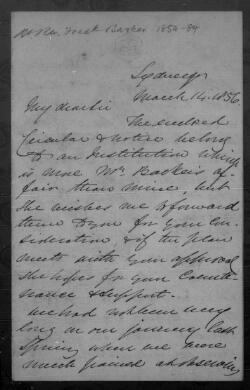 Rt Rev. Fredk Barker 1854-84
Sydney
March 14. 1856
My dear Sir
The enclosed
Circular & Notice belong
to an Institution which
is more Mrs Barker's af-
fair than mine, but
she wishes me to forward
them to you for your Con-
sideration, & if the plan
meets with your approval
she hopes for your Counte-
nance & support.
We had not been very
long on our journey last
Spring when we were
much pained at